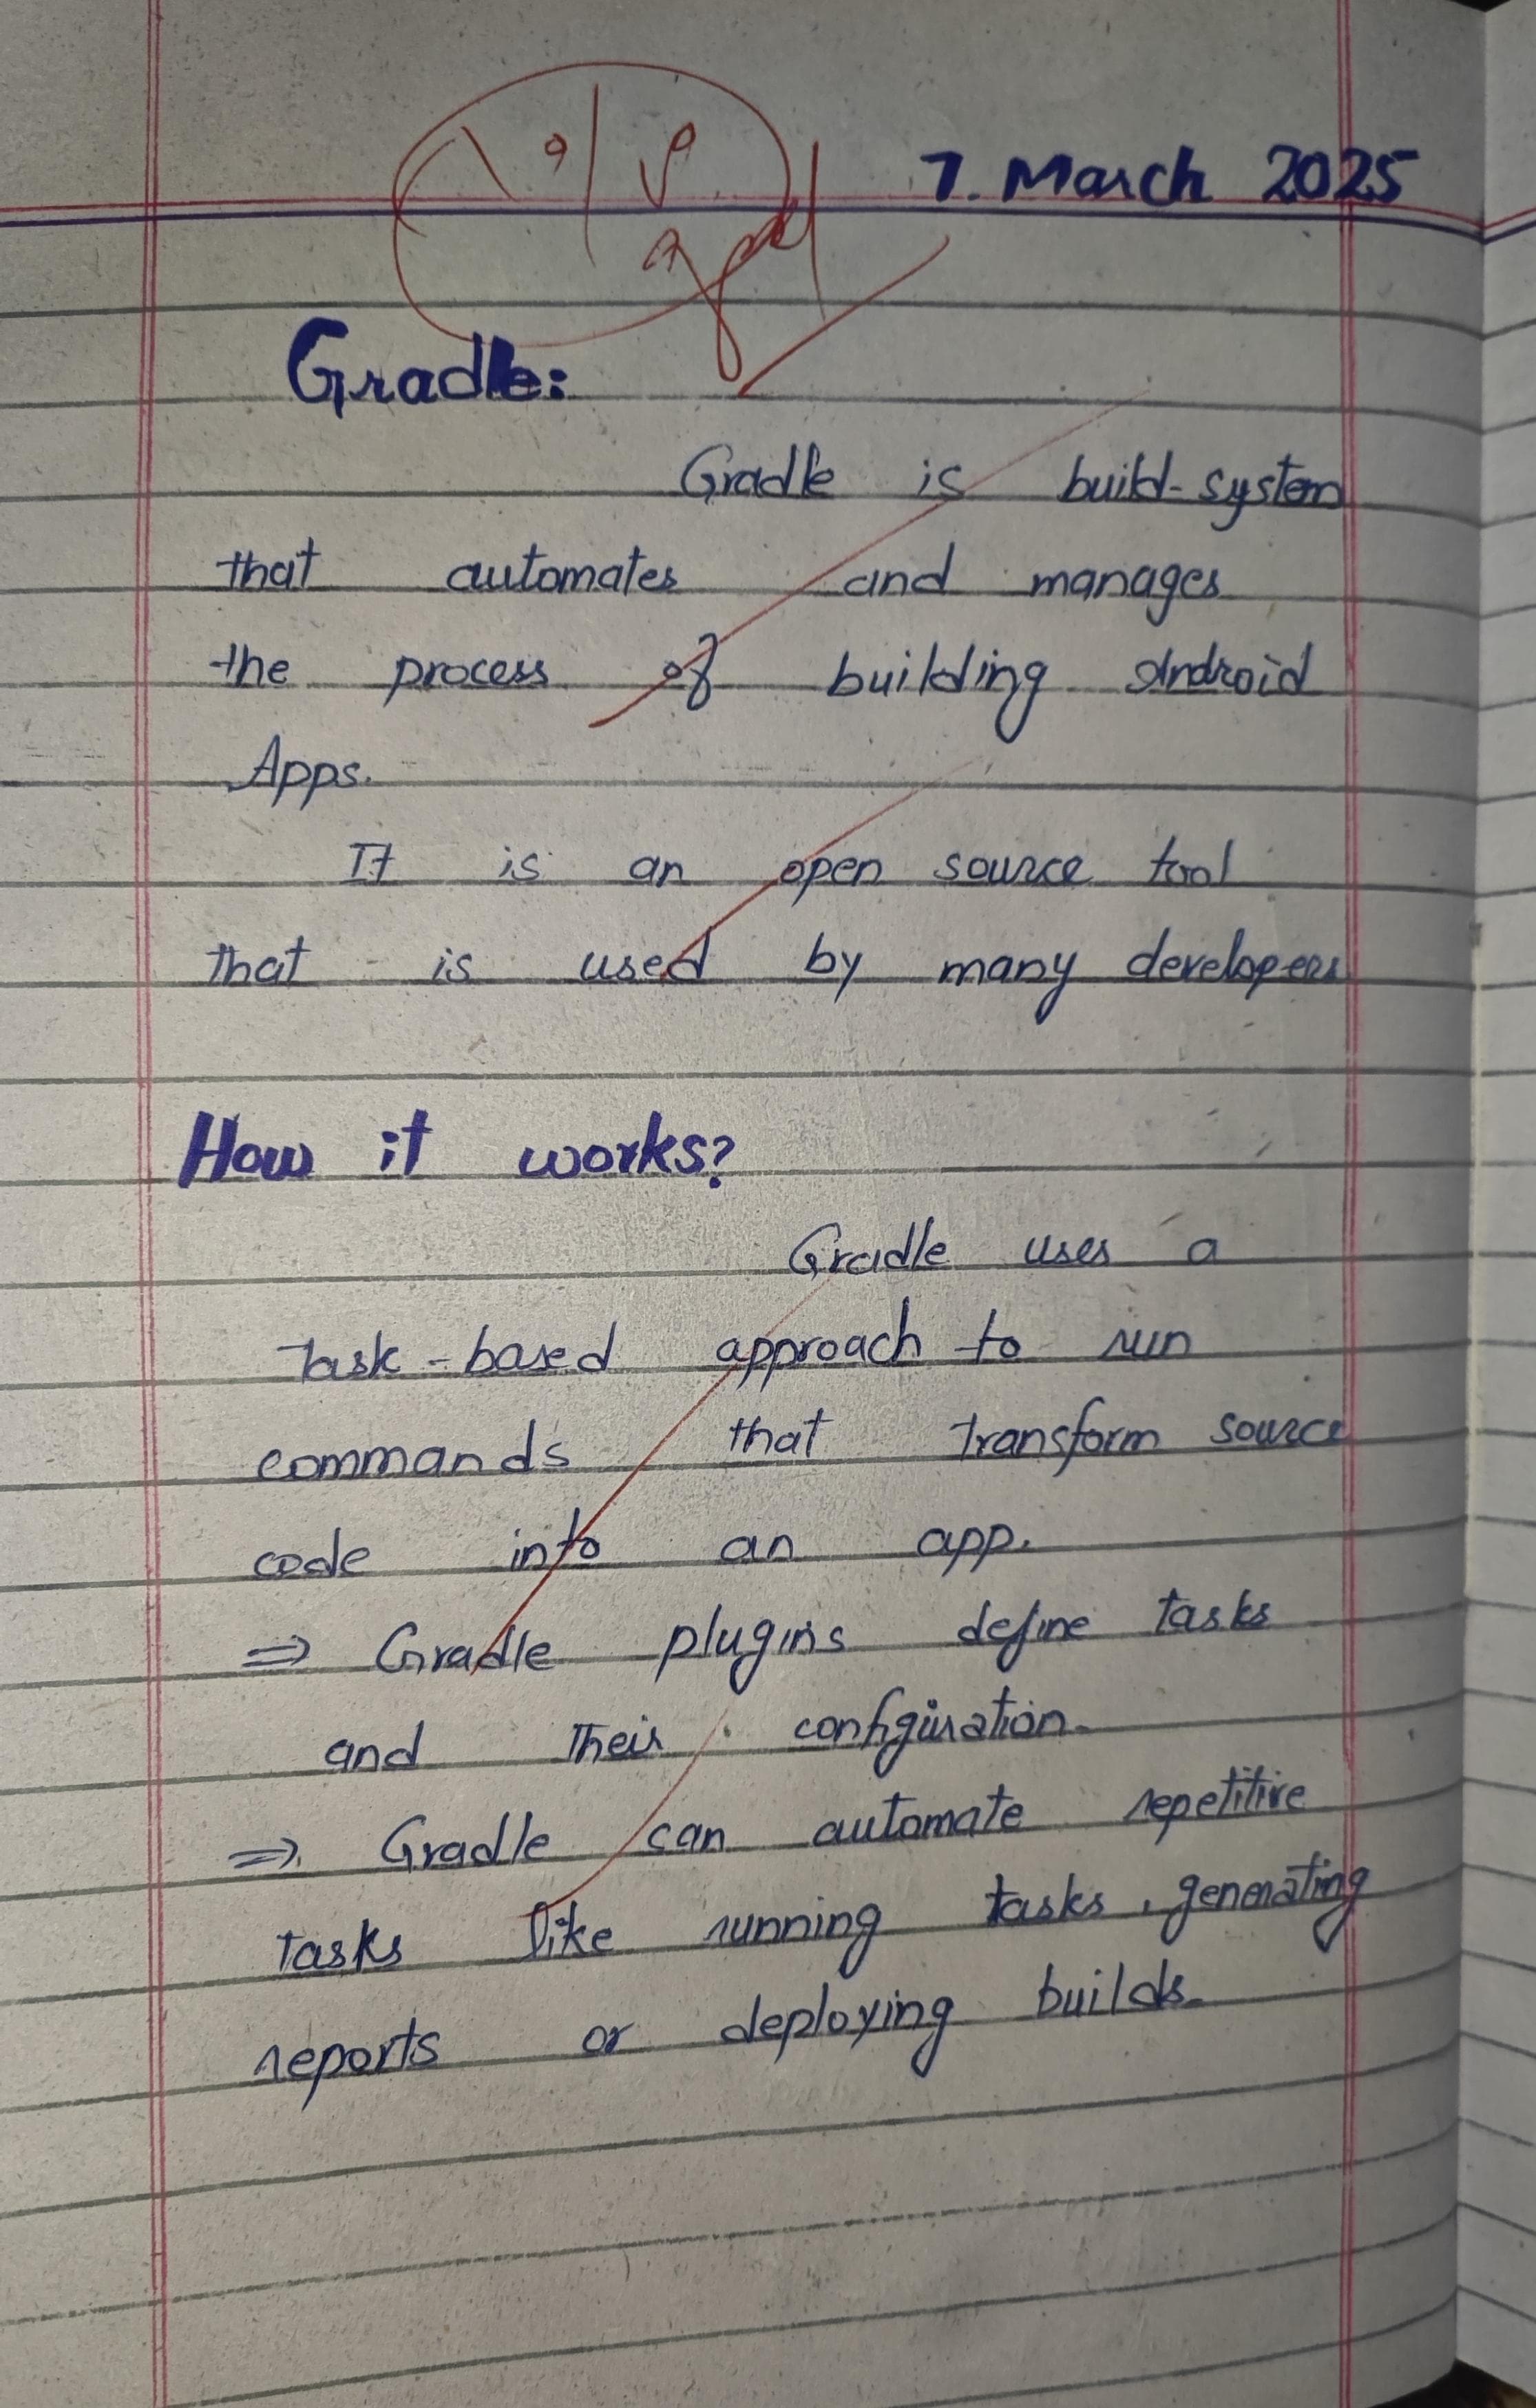 7. March 2025
Gradle:
Gradle is build-system
that automates and manages
the process of building Android
Apps.
It is an open source tool
that is used by many developers
How it works?
Gradle uses a
Task-based approach to run
commands that transform source
code into an app.
⇒ Gradle plugins define tasks
and their configuration.
⇒ Gradle can automate repetitive
tasks like running tasks, generating
reports or deploying builds.